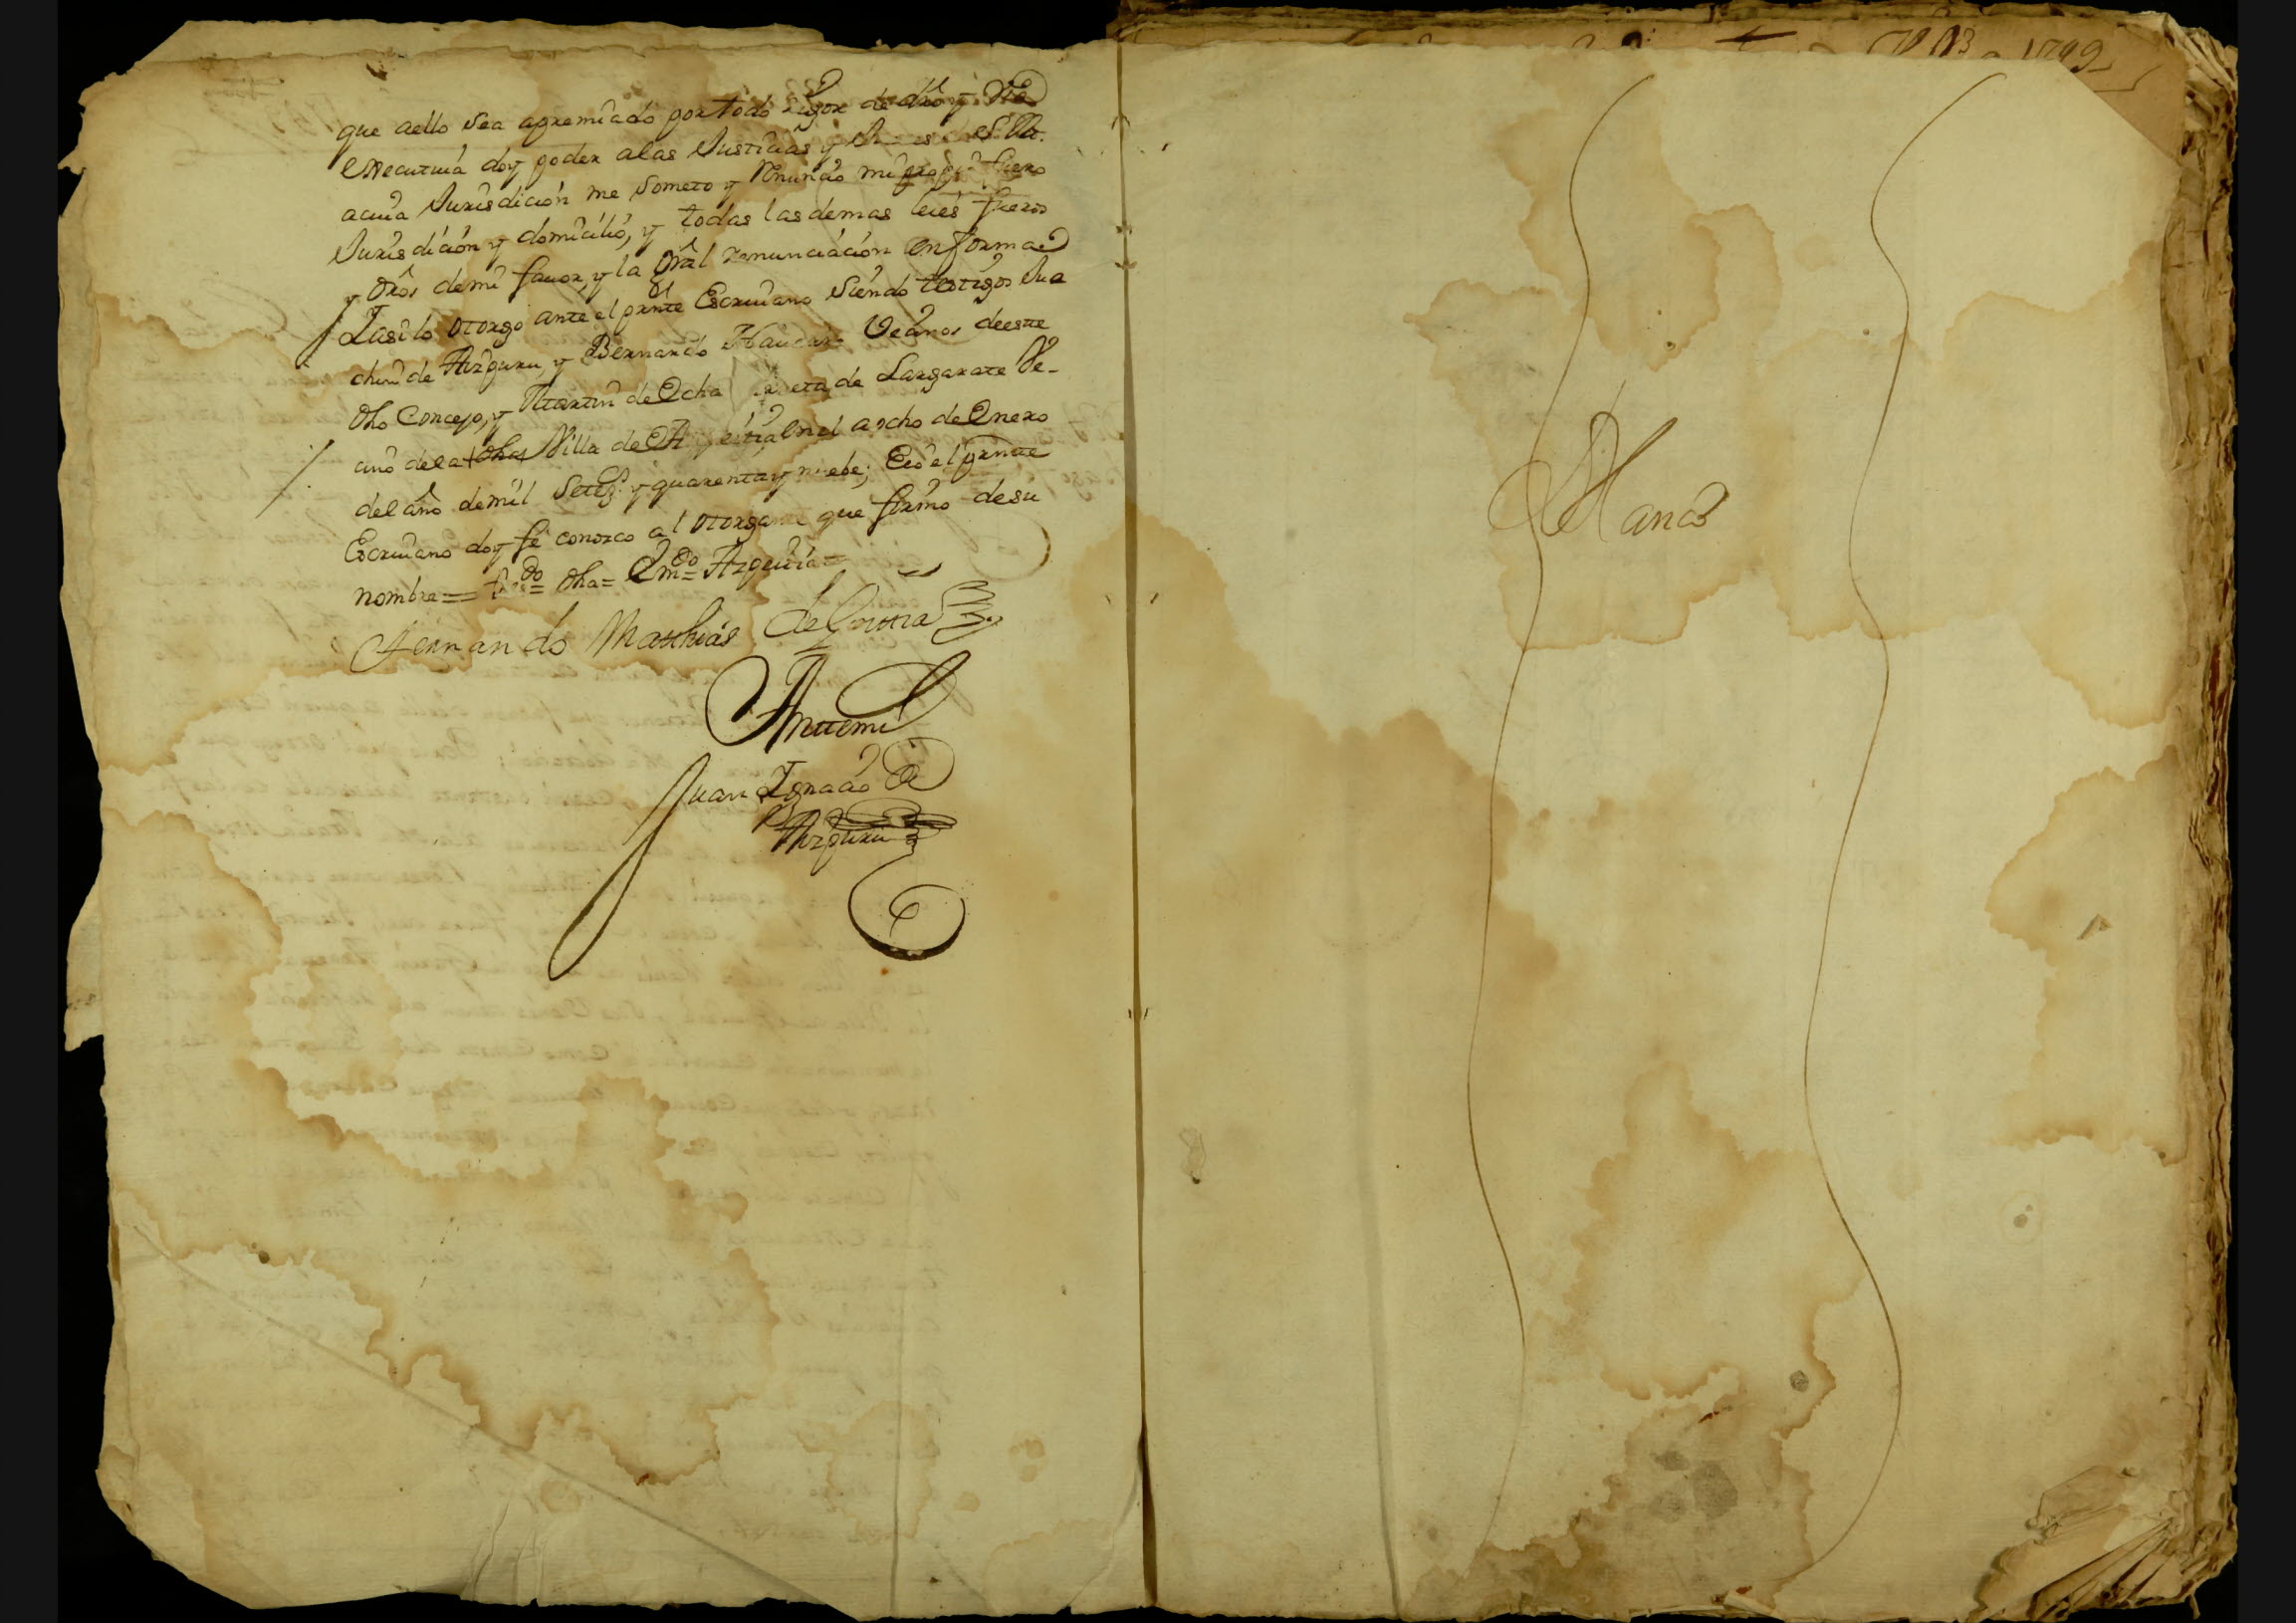 que aello sea apremiado por todo rigor de dro y via
executiva doy poder alas Justicias y de S. M.
acuia Jurisdicion me someto y Renuncio mi propio fuero
Jurisdicion y domicilio, y todas lasdemas leies fueros
y dros demi favor, y la gral renunciacion en forma
Iasi lo otorgo ante el prnte Escrivano siendo testigos Jua
chin de Aizpuru, y Bernardo Vecinos deeste
dho Concejo, y Martin de Ocha de Largarate Ve-
cino dela dha Villa de a ocho de Enero
del año demil Setez.s y quarenta y nuebe; Eio el prnte
Escrivano doy fe conozco al otorgante que firmo desu
nombre = dha = Em.do Azpeitia =
Fernando Matthias de
Anttemi
Juan Ignacio de
Aizpuru
Blanco
1749